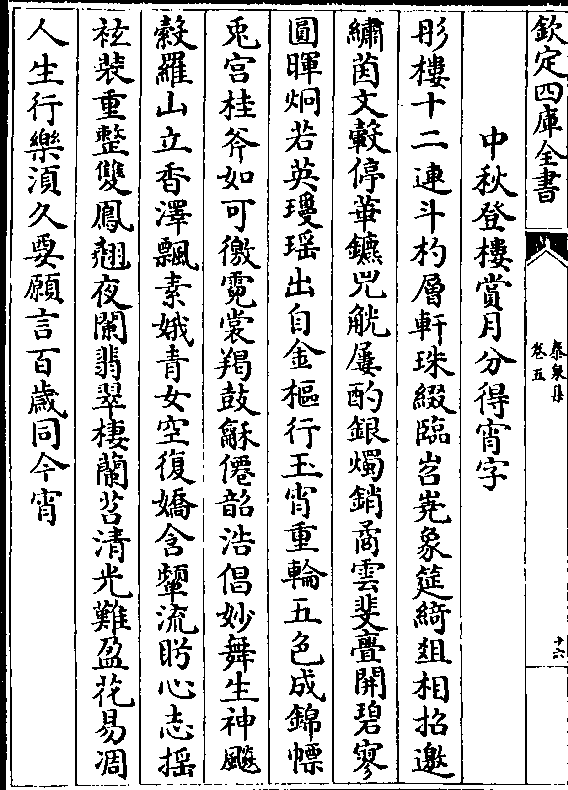 欽定四庫全書
泰泉集
卷五
十六
中秋登樓賞月分得宵字
彤樓十二連斗杓層軒珠綴臨岧嶤象筵綺俎相招邀
繡茵文轂停華鑣兕觥屢酌銀燭銷矞雲斐亹開碧寥
圓暉炯若英瓊瑶出自金樞行玉宵重輪五色成錦幖
兎宫桂斧如可徼霓裳羯鼓龢僊韶浩倡妙舞生神飇
縠羅山立香澤飄素娥青女空復嬌含顰流眄心志揺
袨裝重整雙鳳翹夜闌翡翠棲蘭苕清光難盈花易凋
人生行樂湏久要願言百歲同今宵